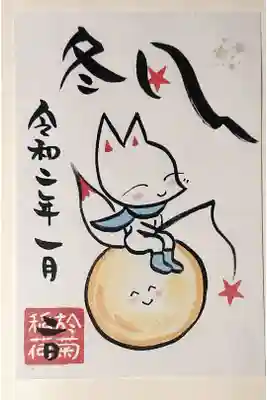 冬
令和二年一月
二日
於菊
稲荷